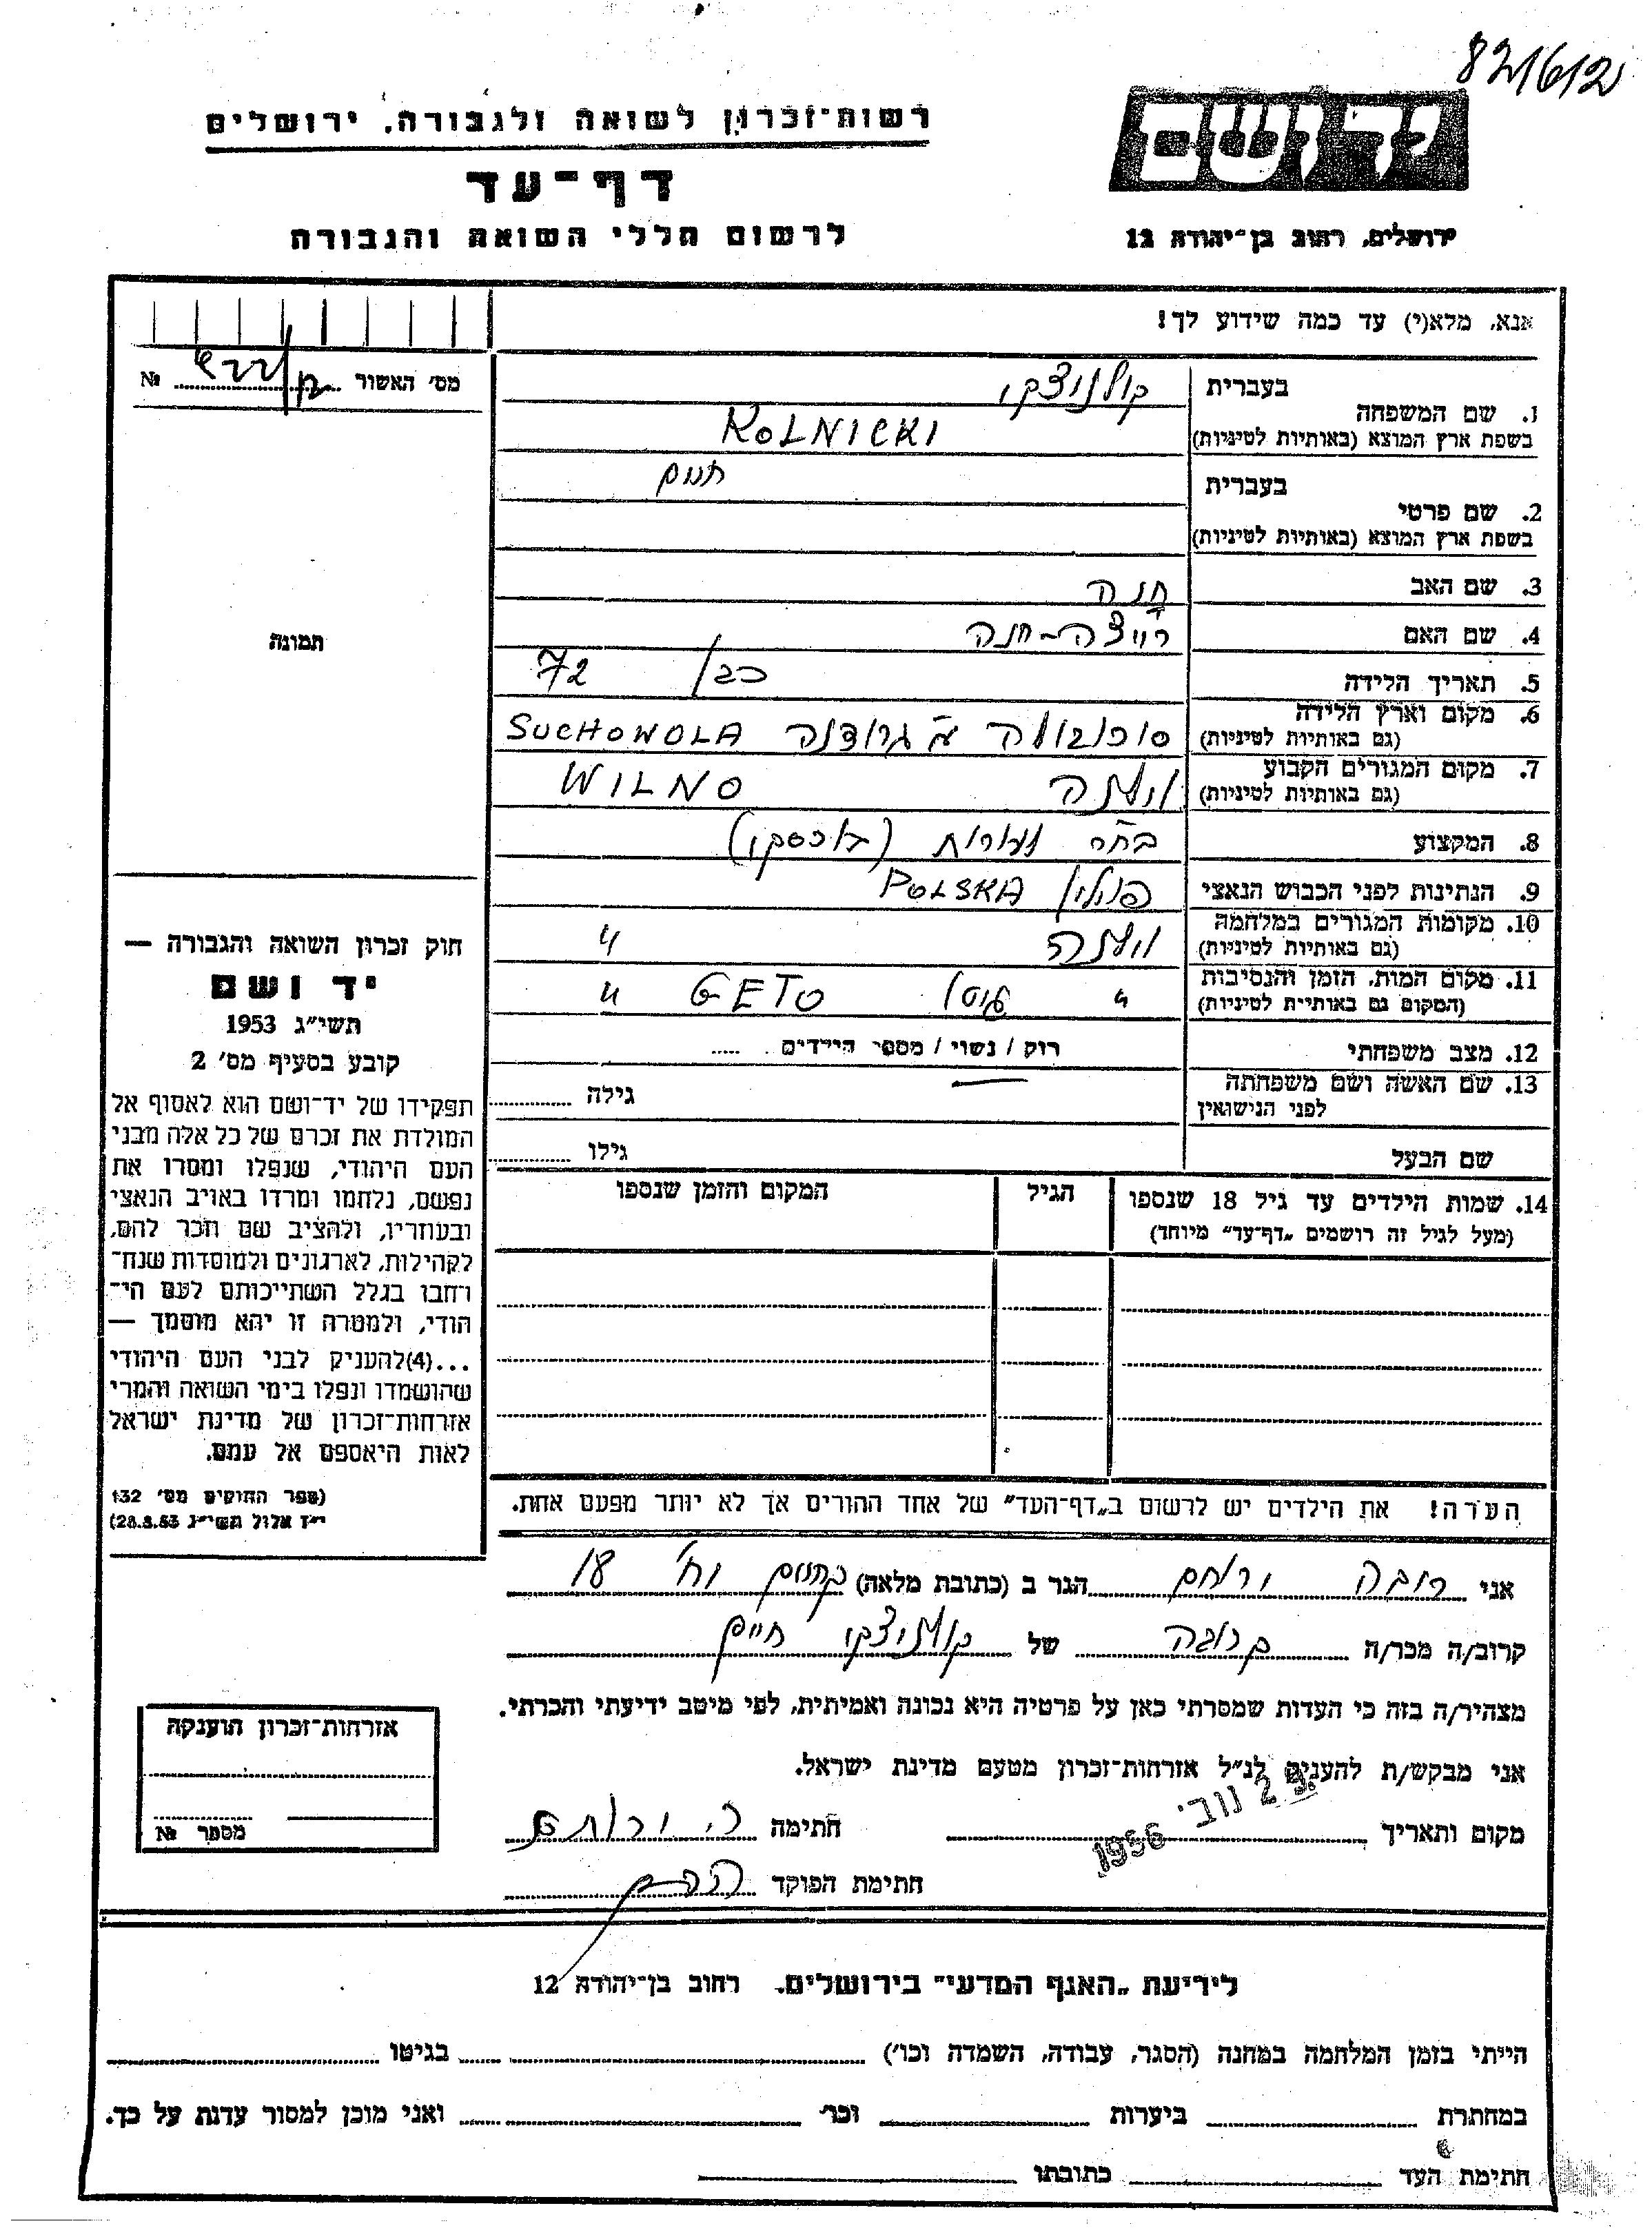 821612
יד ושם
ירושלים, רחוב בן־יהודה 12
רשות־זכרון לשואה ולגבורה, ירושלים
דף־עד
לרשום חללי השואה והגבורה
אנא, מלא(י) עד כמה שידוע לך!
מס׳ האשור № 
1. שם המשפחה
בעברית קולניצקי
בשפת ארץ המוצא (באותיות לטיניות) KOLNICKI
2. שם פרטי
בעברית חיים
בשפת ארץ המוצא (באותיות לטיניות)
3. שם האב
4. שם האם חנה
5. תאריך הלידה 72
6. מקום וארץ הלידה
(גם באותיות לטיניות) סוכובולה גרודנה SUCHOWOLA
7. מקום המגורים הקבוע
(גם באותיות לטיניות) וילנה WILNO
8. המקצוע
9. הנתינות לפני הכבוש הנאצי פולין POLSKA
10. מקומות המגורים במלחמה
(גם באותיות לטיניות) וילנה "
11. מקום המות, הזמן והנסיבות
(המקום גם באותיות לטיניות) " גיטו GETO "
12. מצב משפחתי רוק / נשוי / מספר הילדים .....
13. שם האשה ושם משפחתה
לפני הנישואין גילה
שם הבעל גילו
14. שמות הילדים עד גיל 18 שנספו
(מעל לגיל זה רושמים „דף־עד" מיוחד)
הגיל
המקום והזמן שנספו
הערה! את הילדים יש לרשום ב„דף־העד" של אחד ההורים אך לא יותר מפעם אחת.
תמונה
חוק זכרון השואה והגבורה —
יד ושם
תשי״ג 1953
קובע בסעיף מס׳ 2
תפקידו של יד־ושם הוא לאסוף אל
המולדת את זכרם של כל אלה מבני
העם היהודי, שנפלו ומסרו את
נפשם, נלחמו ומרדו באויב הנאצי
ובעוזריו, ולהציב שם וזכר להם,
לקהילות, לארגונים ולמוסדות שנח־
רחבו בגלל השתייכותם לעם הי־
הודי, ולמטרה זו יהא מוסמך —
...(4)להעניק לבני העם היהודי
שהושמדו ונפלו בימי השואה והמרי
אזרחות־זכרון של מדינת ישראל
לאות היאספם אל עמם.
(ספר החוקים מס׳ 132
י״ז אלול תשי״ג 28.8.53)
אני הגר ב (כתובת מלאה) 18
קרוב/ה מכר/ה קרובה של קולניצקי חיים
מצהיר/ה בזה כי העדות שמסרתי כאן על פרטיה היא נכונה ואמיתית, לפי מיטב ידיעתי והכרתי.
אני מבקש/ת להעניק לנ״ל אזרחות־זכרון מטעם מדינת ישראל.
מקום ותאריך נוב׳ 1956 חתימה
חתימת הפוקד
אזרחות־זכרון הוענקה
מספר №
לידיעת „האגף המדעי" בירושלים. רחוב בן־יהודה 12
הייתי בזמן המלחמה במחנה (הסגר, עבודה, השמדה וכו׳) בגיטו
במחתרת ביערות וכו׳ ואני מוכן למסור עדות על כך.
חתימת העד כתובתו